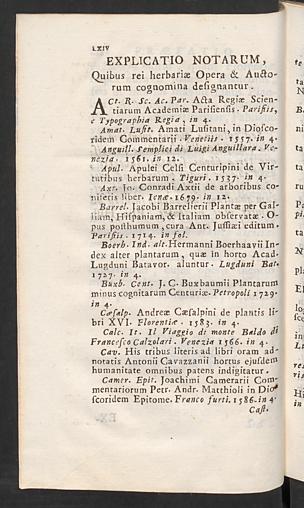 LXIV
EXPLICATIO NOTARUM,
Quibus rei herbariæ Opera & Aucto-
rum cognomina designantur.
Act. R. Sc. Ac. Par. Acta Regiæ Scien-
tiarum Academiæ Parisiensis. Parisiis,
e Typographia Regia, in 4.
Amat. Lusit. Amati Lusitani, in Diosco-
ridem Commentarii. Venetiis. 1557. in 4.
Anguill. Semplici di Luigi Anguillara. Ve-
nezia. 1561. in 12.
Apul. Apulei Celsi Centuripini de Vir-
tutibus herbarum. Tiguri. 1537. in 4.
Axt. Jo. Conradi Axtii de arboribus co-
niferis liber. Jenæ. 1679. in 12.
Barrel. Jacobi Barrelierii Plantæ per Gal-
liam, Hispaniam, & Italiam observatæ. O-
pus posthumum, cura Ant. Jussiæi editum.
Parisiis. 1714. in fol.
Boerh. Ind. alt. Hermanni Boerhaavii In-
dex alter plantarum, quæ in horto Acad.
Lugduni Batavor. aluntur. Lugduni Bat.
1727. in 4.
Buxb. Cent. J. C. Buxbaumii Plantarum
minus cognitarum Centuriæ. Petropoli 1729.
in 4.
Cæsalp. Andreæ Cæsalpini de plantis li-
bri XVI. Florentiæ. 1583. in 4.
Calc. It. Il Viaggio di monte Baldo di
Francesco Calzolari. Venezia 1566. in 4.
Cav. His tribus literis ad libri oram ad-
notatis Antonii Cavazzanii hortus ejusdem
humanitate omnibus patens indigitatur.
Camer. Epit. Joachimi Camerarii Com-
mentariorum Petr. Andr. Matthioli in Dio-
scoridem Epitome. Franco furti. 1586. in 4.
Cast.